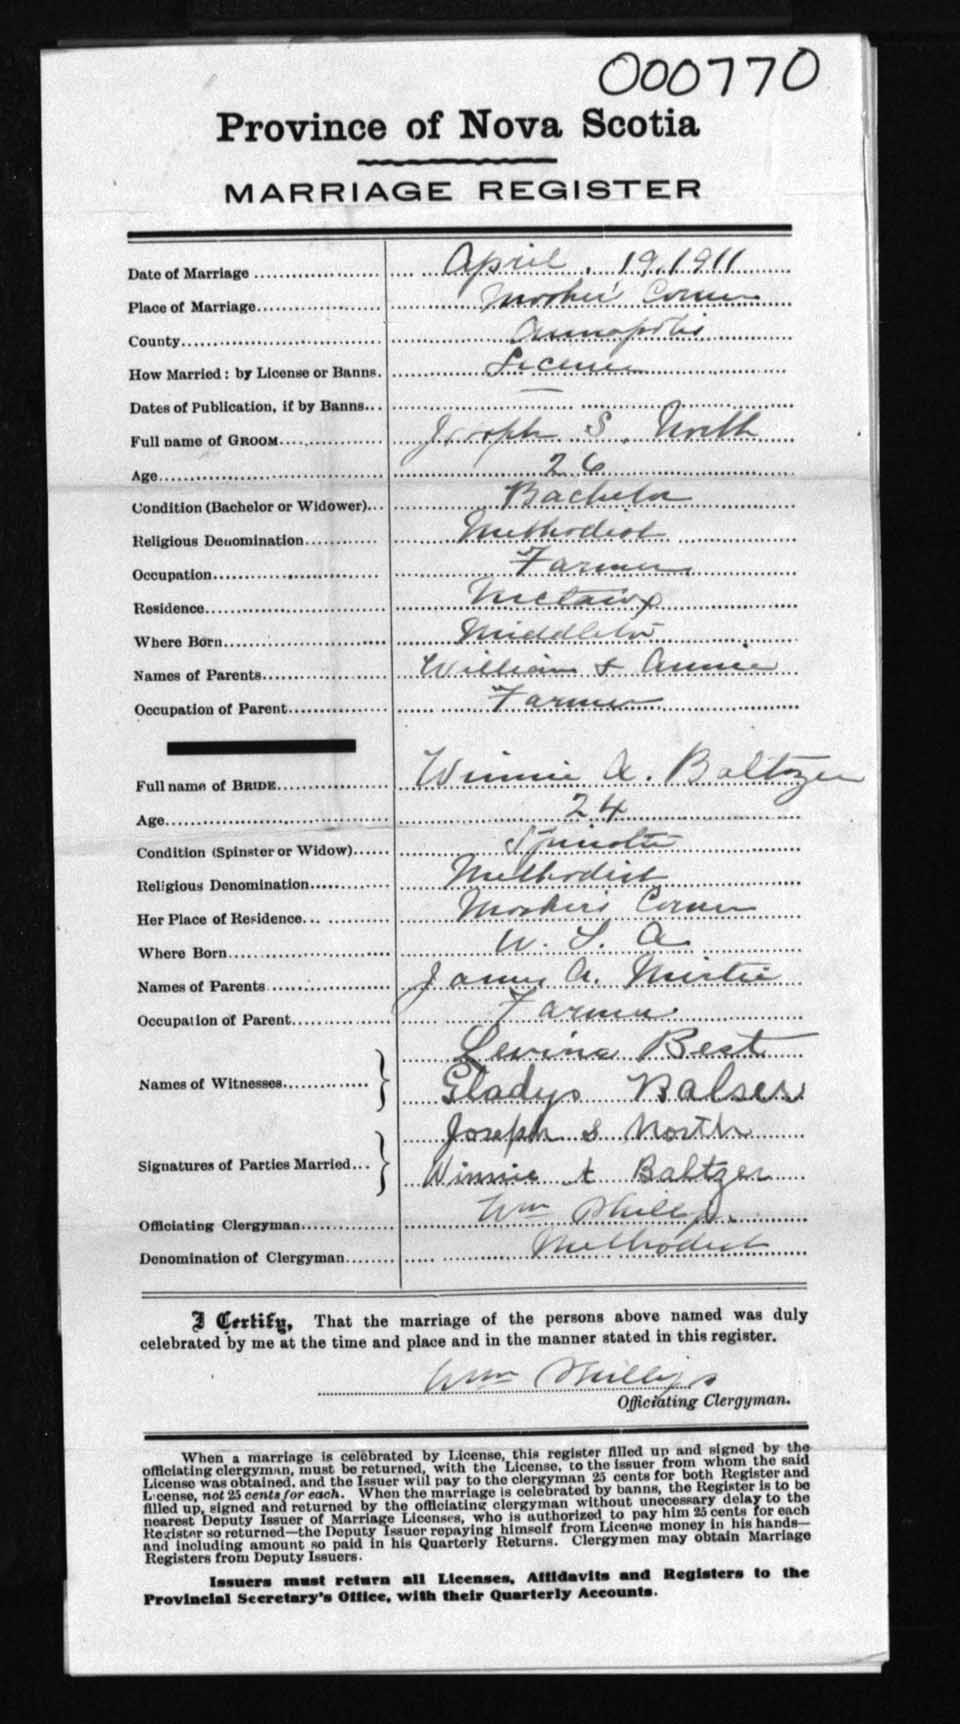 000770
Province of Nova Scotia
MARRIAGE REGISTER
Date of Marriage April. 19, 1911
Place of Marriage Mosher's Corner
County Annapolis
How Married: by License or Banns. License
Dates of Publication, if by Banns —
Full name of GROOM Joseph S. North
Age 26
Condition (Bachelor or Widower) Bachelor
Religious Denomination Methodist
Occupation Farmer
Residence
Where Born Middleton
Names of Parents William & Annie
Occupation of Parent Farmer
Full name of BRIDE Winnie A. Baltzer
Age 24
Condition (Spinster or Widow) Spinster
Religious Denomination Methodist
Her Place of Residence Mosher's Corner
Where Born U. S. A
Names of Parents James A.
Occupation of Parent Farmer
Names of Witnesses Levina Best
Gladys Balser
Signatures of Parties Married Joseph S North
Winnie A Baltzer
Officiating Clergyman Wm Phillips
Denomination of Clergyman Methodist
I Certify, That the marriage of the persons above named was duly
celebrated by me at the time and place and in the manner stated in this register.
Wm Phillips
Officiating Clergyman.
When a marriage is celebrated by License, this register filled up and signed by the
officiating clergyman, must be returned, with the License, to the issuer from whom the said
License was obtained, and the Issuer will pay to the clergyman 25 cents for both Register and
License, not 25 cents for each. When the marriage is celebrated by banns, the Register is to be
filled up, signed and returned by the officiating clergyman without unecessary delay to the
nearest Deputy Issuer of Marriage Licenses, who is authorized to pay him 25 cents for each
Register so returned—the Deputy Issuer repaying himself from License money in his hands—
and including amount so paid in his Quarterly Returns. Clergymen may obtain Marriage
Registers from Deputy Issuers.
Issuers must return all Licenses, Affidavits and Registers to the
Provincial Secretary's Office, with their Quarterly Accounts.